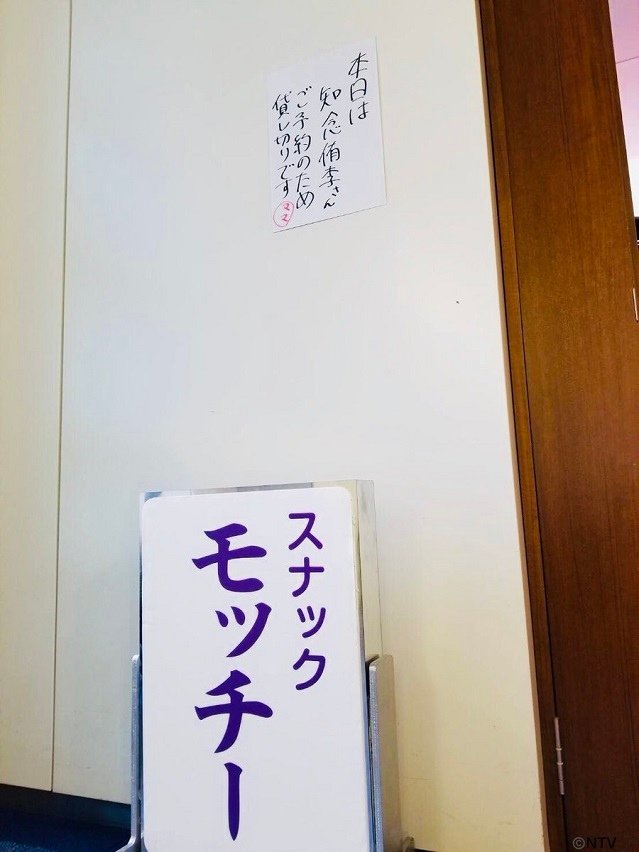 本日は
知念侑李さん
ご予約のため
貸し切りです
ママ
スナック
モッチー
©NTV